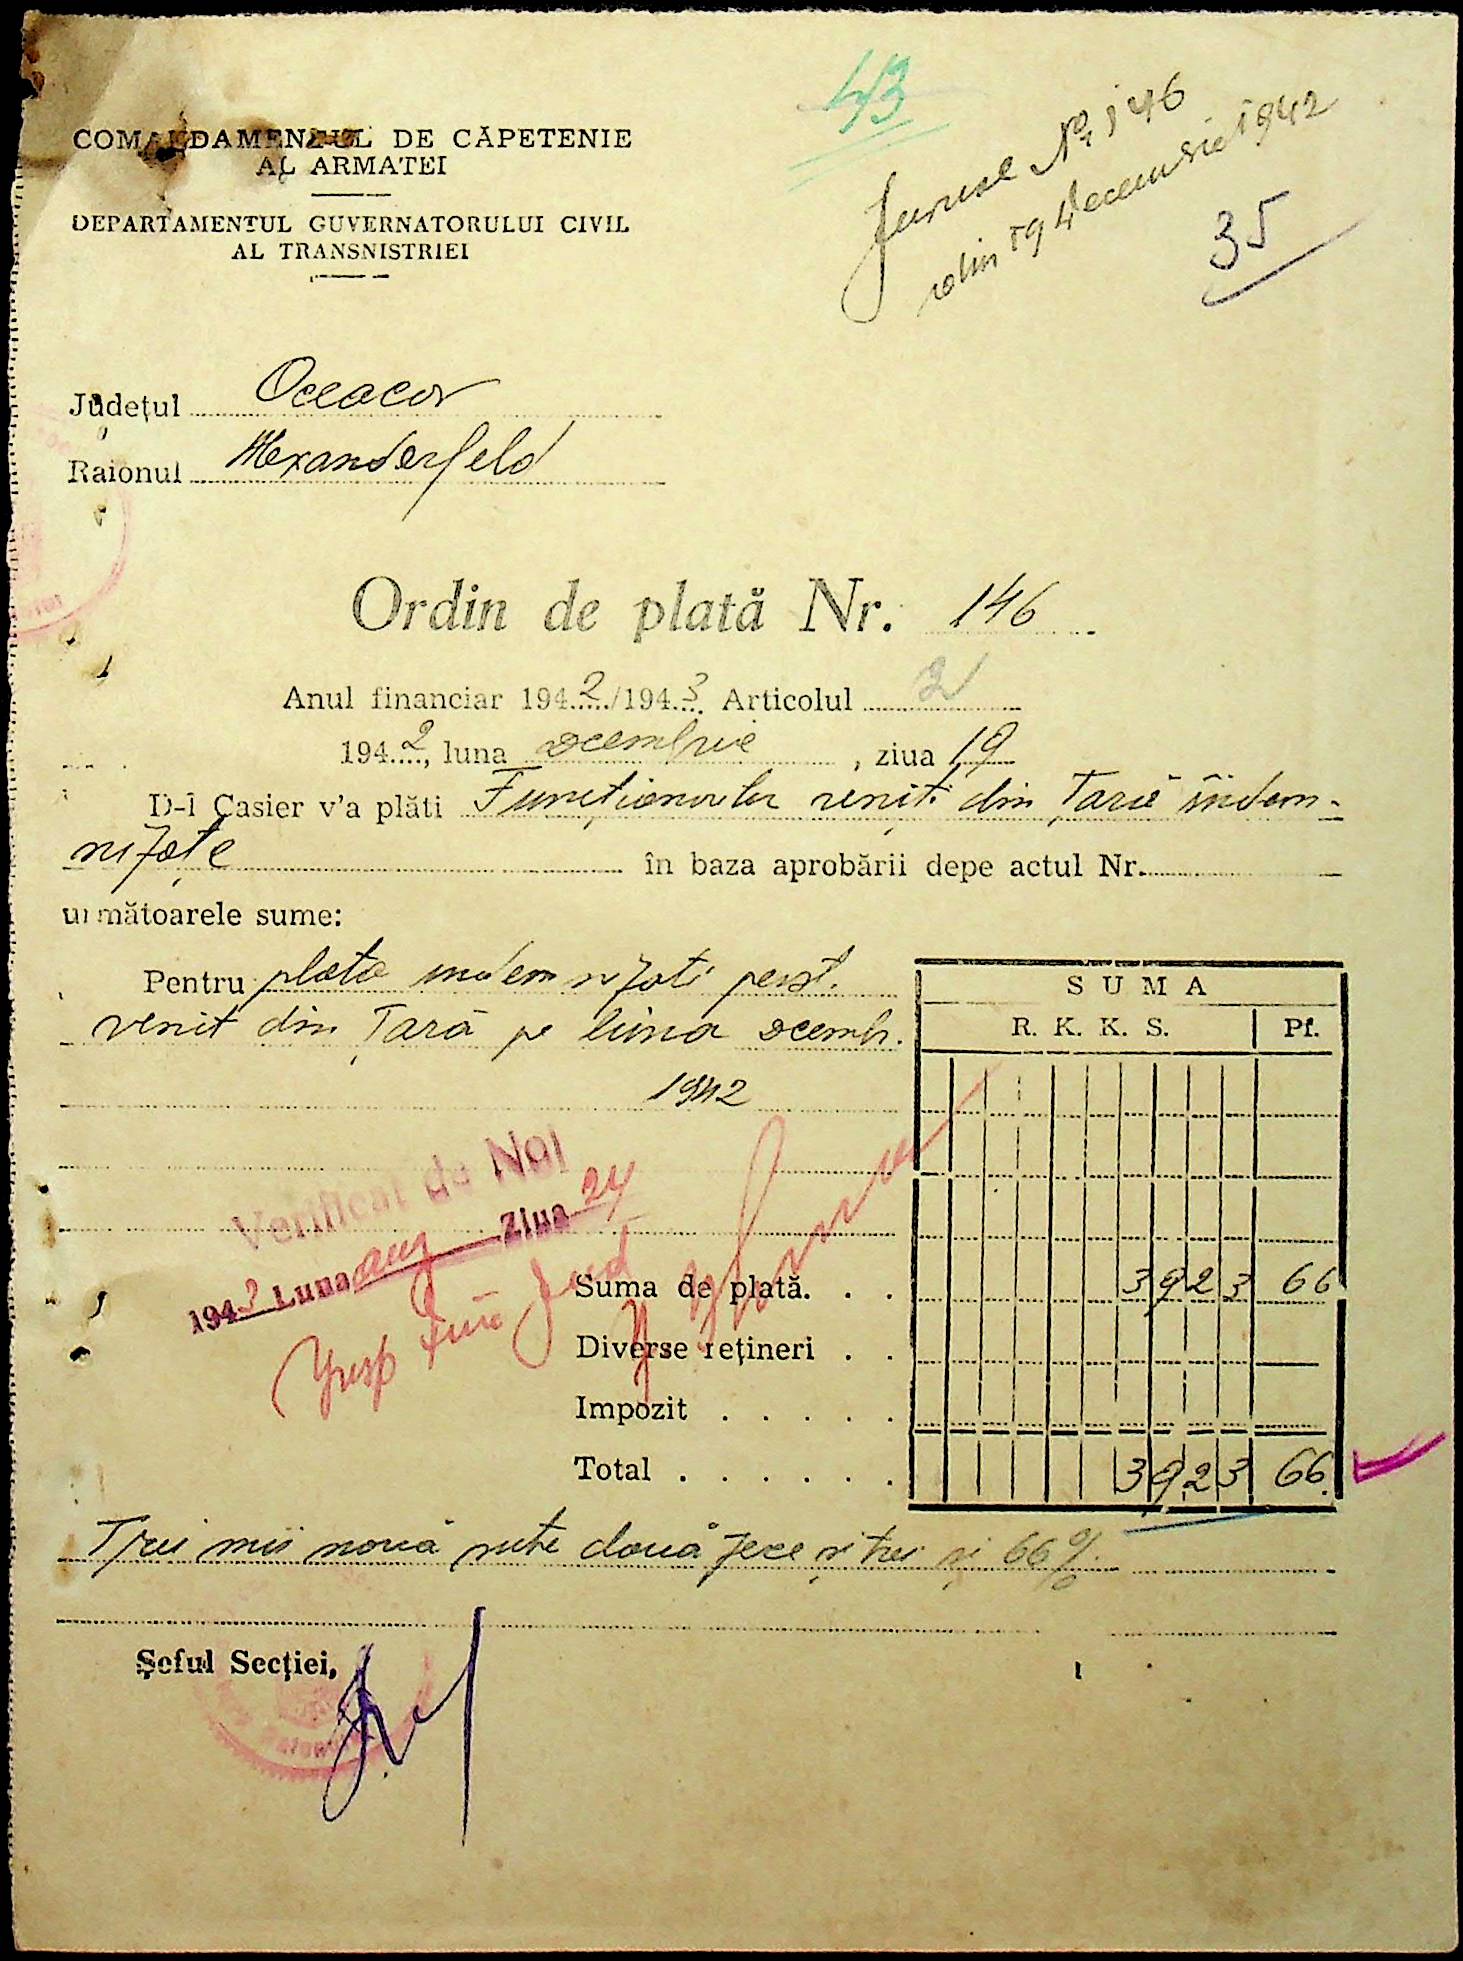 43
Jurnal No 146
din 19 decembrie 1942
35
COMANDAMENTUL DE CĂPETENIE
AL ARMATEI
DEPARTAMENTUL GUVERNATORULUI CIVIL
AL TRANSNISTRIEI
Județul Oceacov
Raionul Alexanderfeld
Ordin de plată Nr. 146
Anul financiar 1942/1943 Articolul 2
1942, luna Decembrie, ziua 19
D-l Casier v'a plăti Funcționarilor veniți din Țară indem-
nizație în baza aprobării depe actul Nr.
următoarele sume:
Pentru plata indemnizati perst.
venit din Țară pe luna Decembr.
1942
SUMA
R. K. K. S. Pf.
Verificat de Noi
1943 Luna aug Ziua 24
Suma de plată. . . 3923 66
Diverse rețineri . .
Impozit . . . . .
Total . . . . . . 3923 66
Trei mii nouă sute două zece și trei și 66%
Șeful Secției,